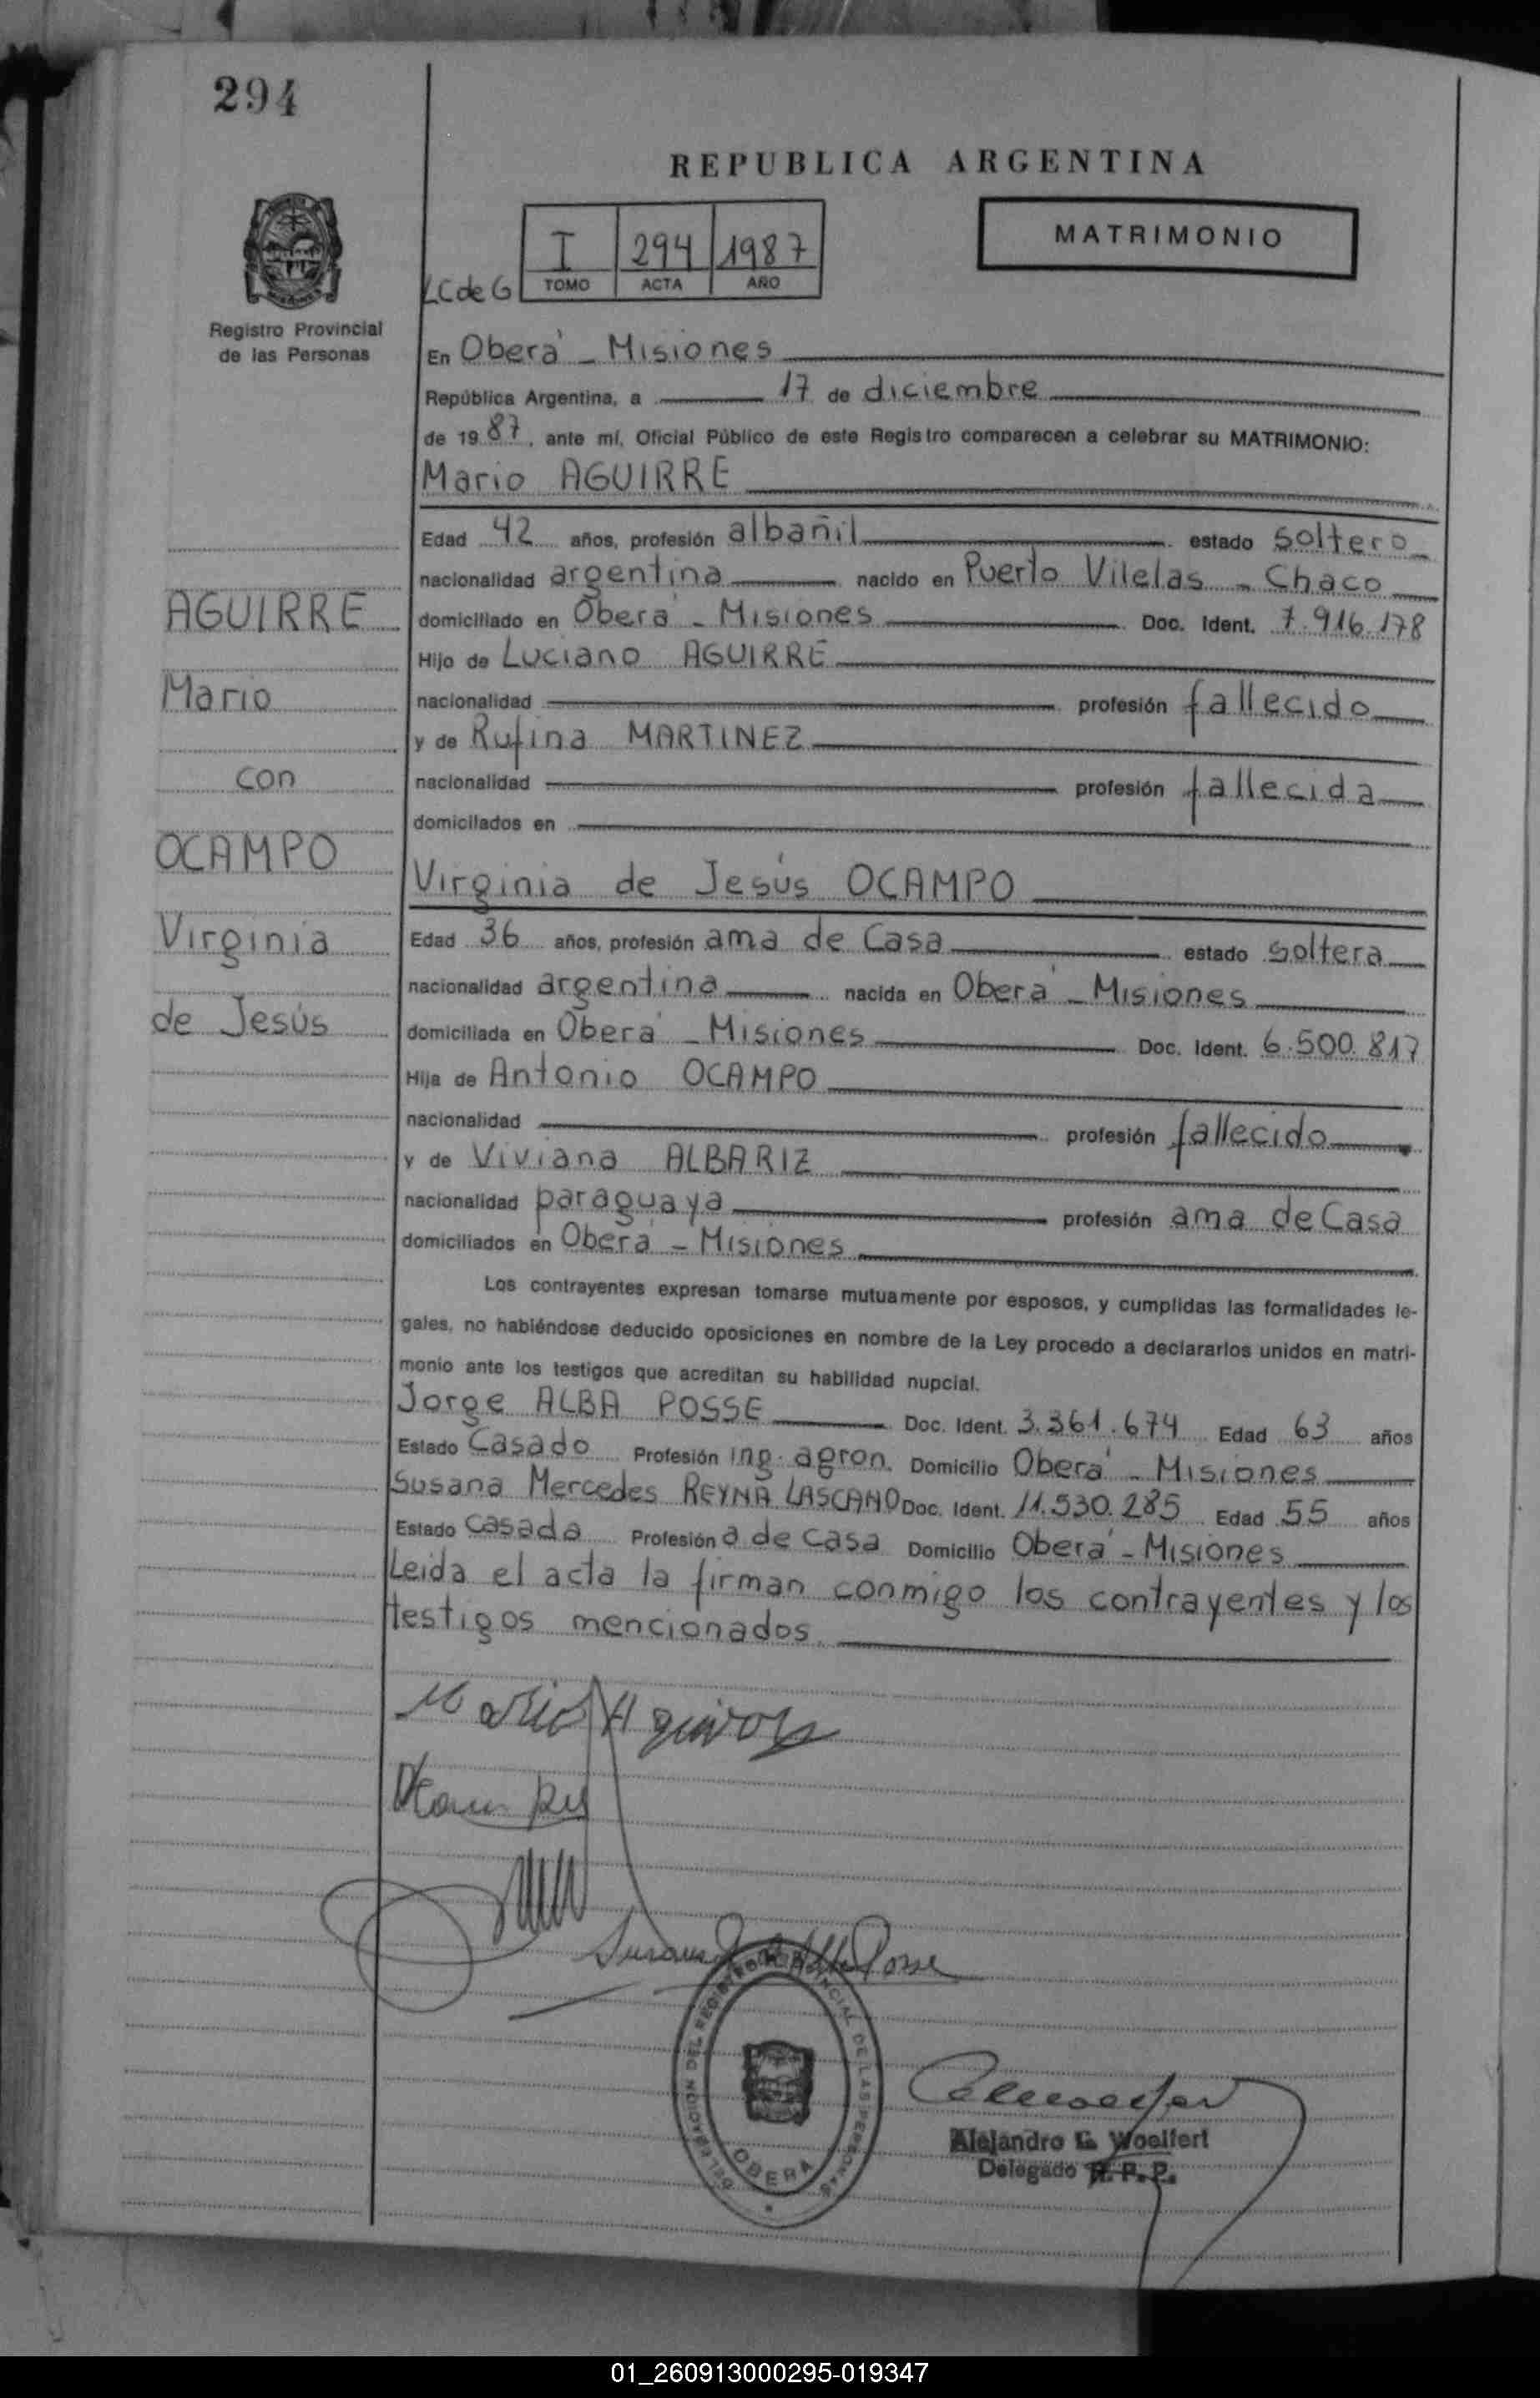 294
REPUBLICA ARGENTINA
MATRIMONIO
I 294 1987
TOMO ACTA AÑO
LC de G
Registro Provincial
de las Personas
En Oberá - Misiones
República Argentina, a 17 de diciembre
de 1987, ante mí, Oficial Público de este Registro comparecen a celebrar su MATRIMONIO:
Mario AGUIRRE
Edad 42 años, profesión albañil estado soltero
nacionalidad argentina nacido en Puerto Vilelas - Chaco
domiciliado en Oberá - Misiones Doc. Ident. 7.916.178
Hijo de Luciano AGUIRRE
nacionalidad profesión fallecido
y de Rufina MARTINEZ
nacionalidad profesión fallecida
domicilados en
Virginia de Jesús OCAMPO
Edad 36 años, profesión ama de Casa estado soltera
nacionalidad argentina nacida en Oberá - Misiones
domiciliada en Oberá - Misiones Doc. Ident. 6.500.817
Hija de Antonio OCAMPO
nacionalidad profesión fallecido
y de Viviana ALBARIZ
nacionalidad paraguaya profesión ama de Casa
domiciliados en Oberá - Misiones
Los contrayentes expresan tomarse mutuamente por esposos, y cumplidas las formalidades le-
gales, no habiéndose deducido oposiciones en nombre de la Ley procedo a declararlos unidos en matri-
monio ante los testigos que acreditan su habilidad nupcial.
Jorge ALBA POSSE Doc. Ident. 3.361.674 Edad 63 años
Estado Casado Profesión ing. agron. Domicilio Oberá - Misiones
Susana Mercedes REYNA LASCANO Doc. Ident. 11.530.285 Edad 55 años
Estado casada Profesión a de casa Domicilio Oberá - Misiones
Leida el acta la firman conmigo los contrayentes y los
testigos mencionados.
AGUIRRE
Mario
con
OCAMPO
Virginia
de Jesús
Mario Aguirre
Susana de Alba Posse
DELEGACION DEL REGISTRO PROVINCIAL DE LAS PERSONAS
OBERA
Alejandro E. Woelfert
Delegado R. P. P.
01_260913000295-019347